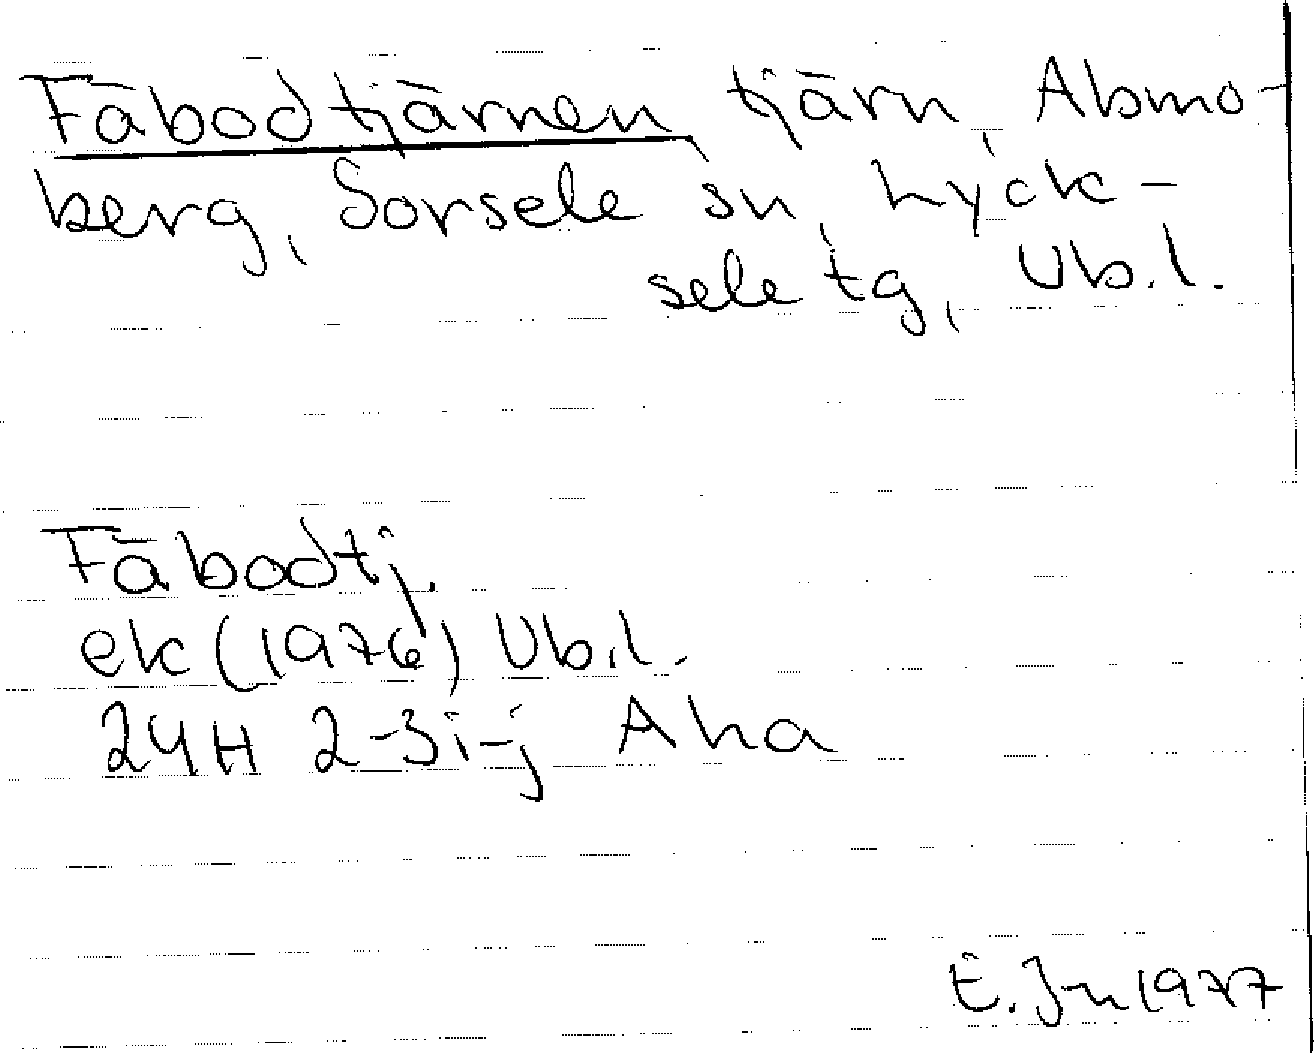 Fäbodtjärnen, tjärn, Abmo-
berg, Sorsele sn, Lyck-
sele tg, Vb.l.
Fäbodtj.
ek (1976) Vb.l.
24H 2-3i-j Aha
1977